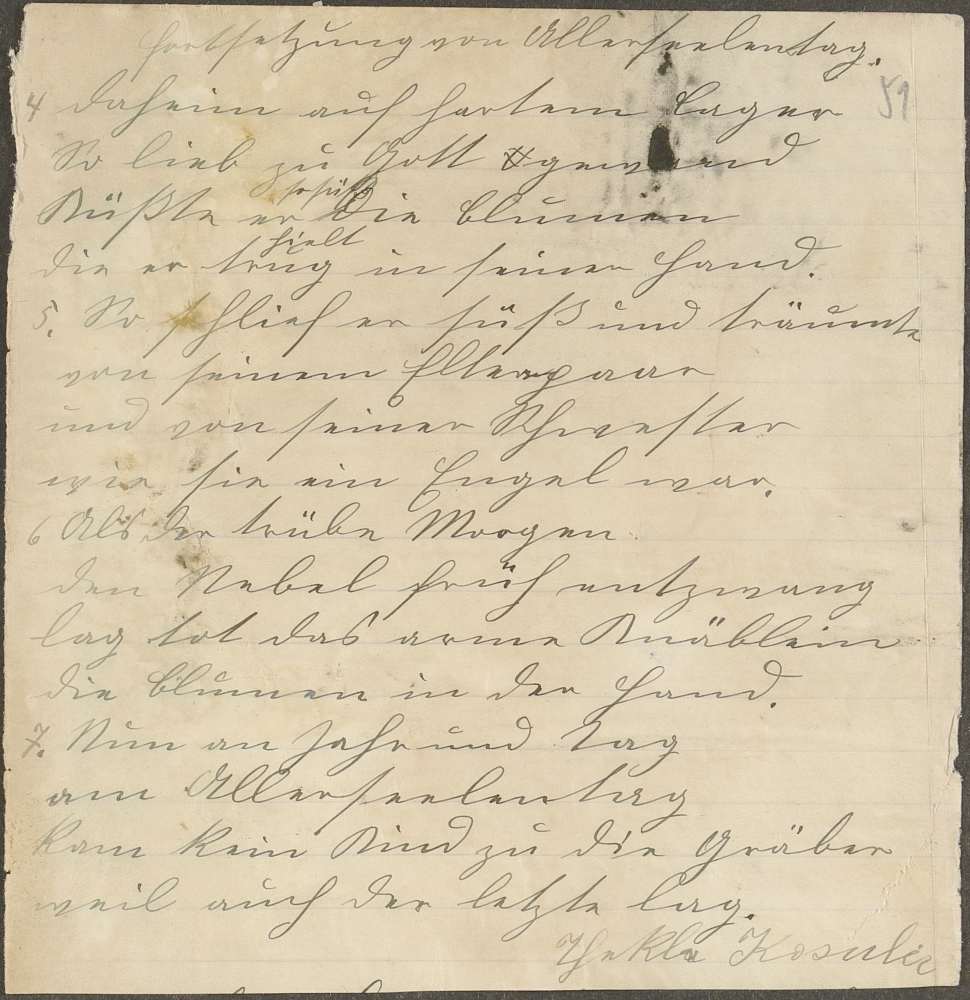 Fortsetzung von Allerseelentag.
51
4 Daheim auf hartem Lager
So lieb zu Gott gewand
so süß
Küßte er die Blumen
hielt
die er trug in seiner Hand.
5. So schlief er süß und träumte
von seinem Elternpaar
und von seiner Schwester
wie sie ein Engel war.
6 Als der trübe Morgen
den Nebel früh entzwang
lag tot das arme Knäblein
die Blumen in der Hand.
7. Nun an Jahr und Tag
am Allerseelentag
kam kein Kind zu die Gräber
weil auch der letzte lag.
Thekla